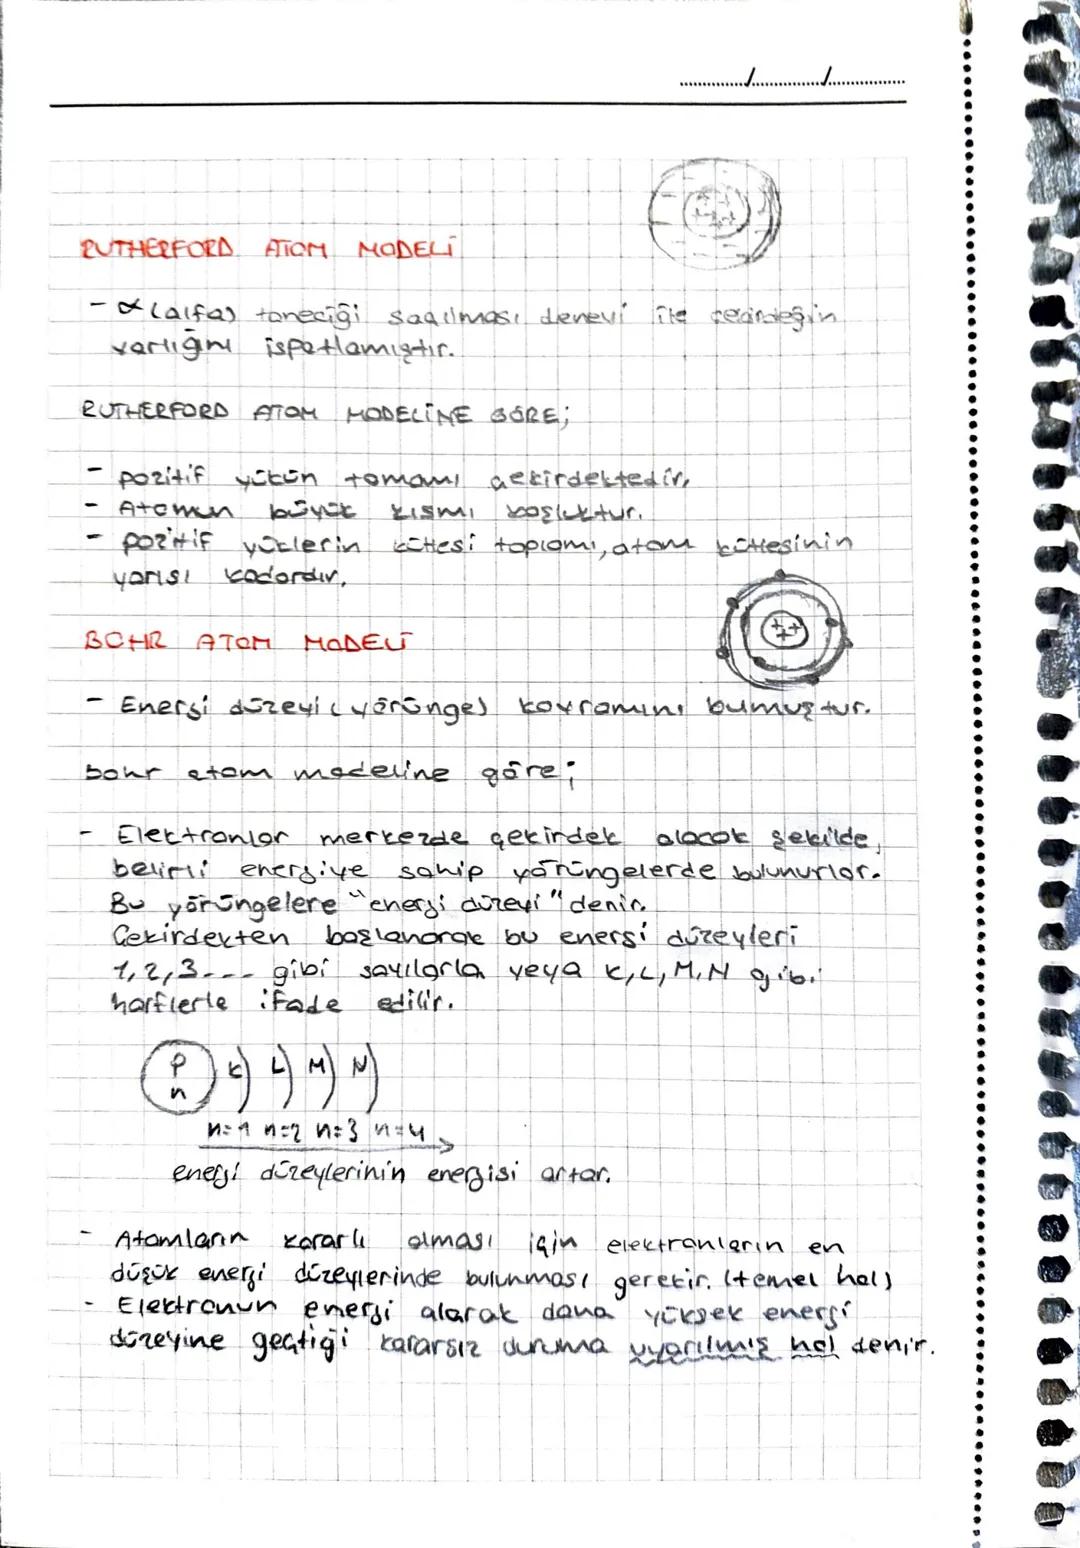 RUTHERFORD ATOM MODELİ
- α (alfa) taneciği saçılması deneyi ile çekirdeğin
varlığını ispatlamıştır.
RUTHERFORD ATOM MODELİNE GÖRE;
- pozitif yükün tamamı çekirdektedir.
- Atomun büyük kısmı boşluktur.
- pozitif yüklerin kütlesi toplamı, atom kütlesinin
yarısı kadardır.
BOHR ATOM MODELİ
- Enerji düzeyi (yörünge) kavramını bumuştur.
bohr atom modeline göre;
- Elektronlar merkezde çekirdek olacak şekilde,
belirli enerjiye sahip yörüngelerde bulunurlar.
Bu yörüngelere "enerji düzeyi" denir.
Çekirdekten başlanarak bu enerji düzeyleri
1, 2, 3... gibi sayılarla veya K, L, M, N gibi
harflerle ifade edilir.
P K L M N
n
n=1 n=2 n=3 n=4
enerji düzeylerinin enerjisi artar.
- Atomların kararlı olması için elektronların en
düşük enerji düzeylerinde bulunması gerekir. (temel hal)
- Elektronun enerji alarak daha yüksek enerji
düzeyine geçtiği kararsız duruma uyarılmış hal denir.